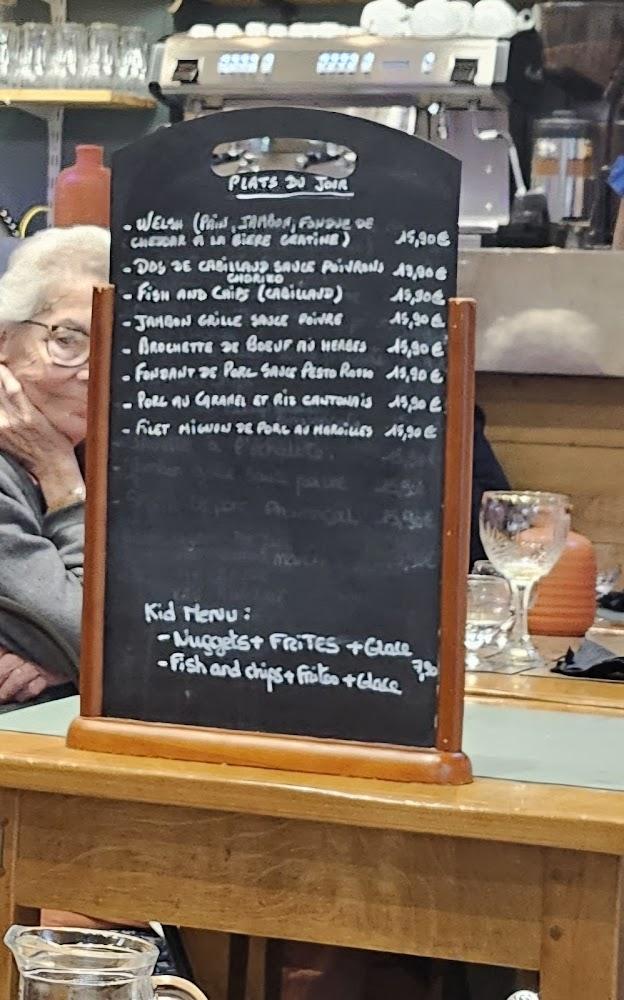 PLATS DU JOUR
- WELSH (PAIN, JAMBON, FONDUE DE
CHEDDAR À LA BIÈRE GRATINÉ) 15,90 €
- DOS DE CABILLAUD SAUCE POIVRONS 19,90 €
CHORIZO
- FISH AND CHIPS (CABILLAUD) 15,90 €
- JAMBON GRILLÉ SAUCE POIVRE 15,90 €
- BROCHETTE DE BOEUF AU HERBES 15,90 €
- FONDANT DE PORC SAUCE PESTO ROSSO 15,90 €
- PORC AU CARAMEL ET RIZ CANTONAIS 15,90 €
- FILET MIGNON DE PORC AU MAROILLES 15,90 €
Kid Menu :
- Nuggets + FRITES + Glace
- Fish and chips + Frites + Glace 7,90